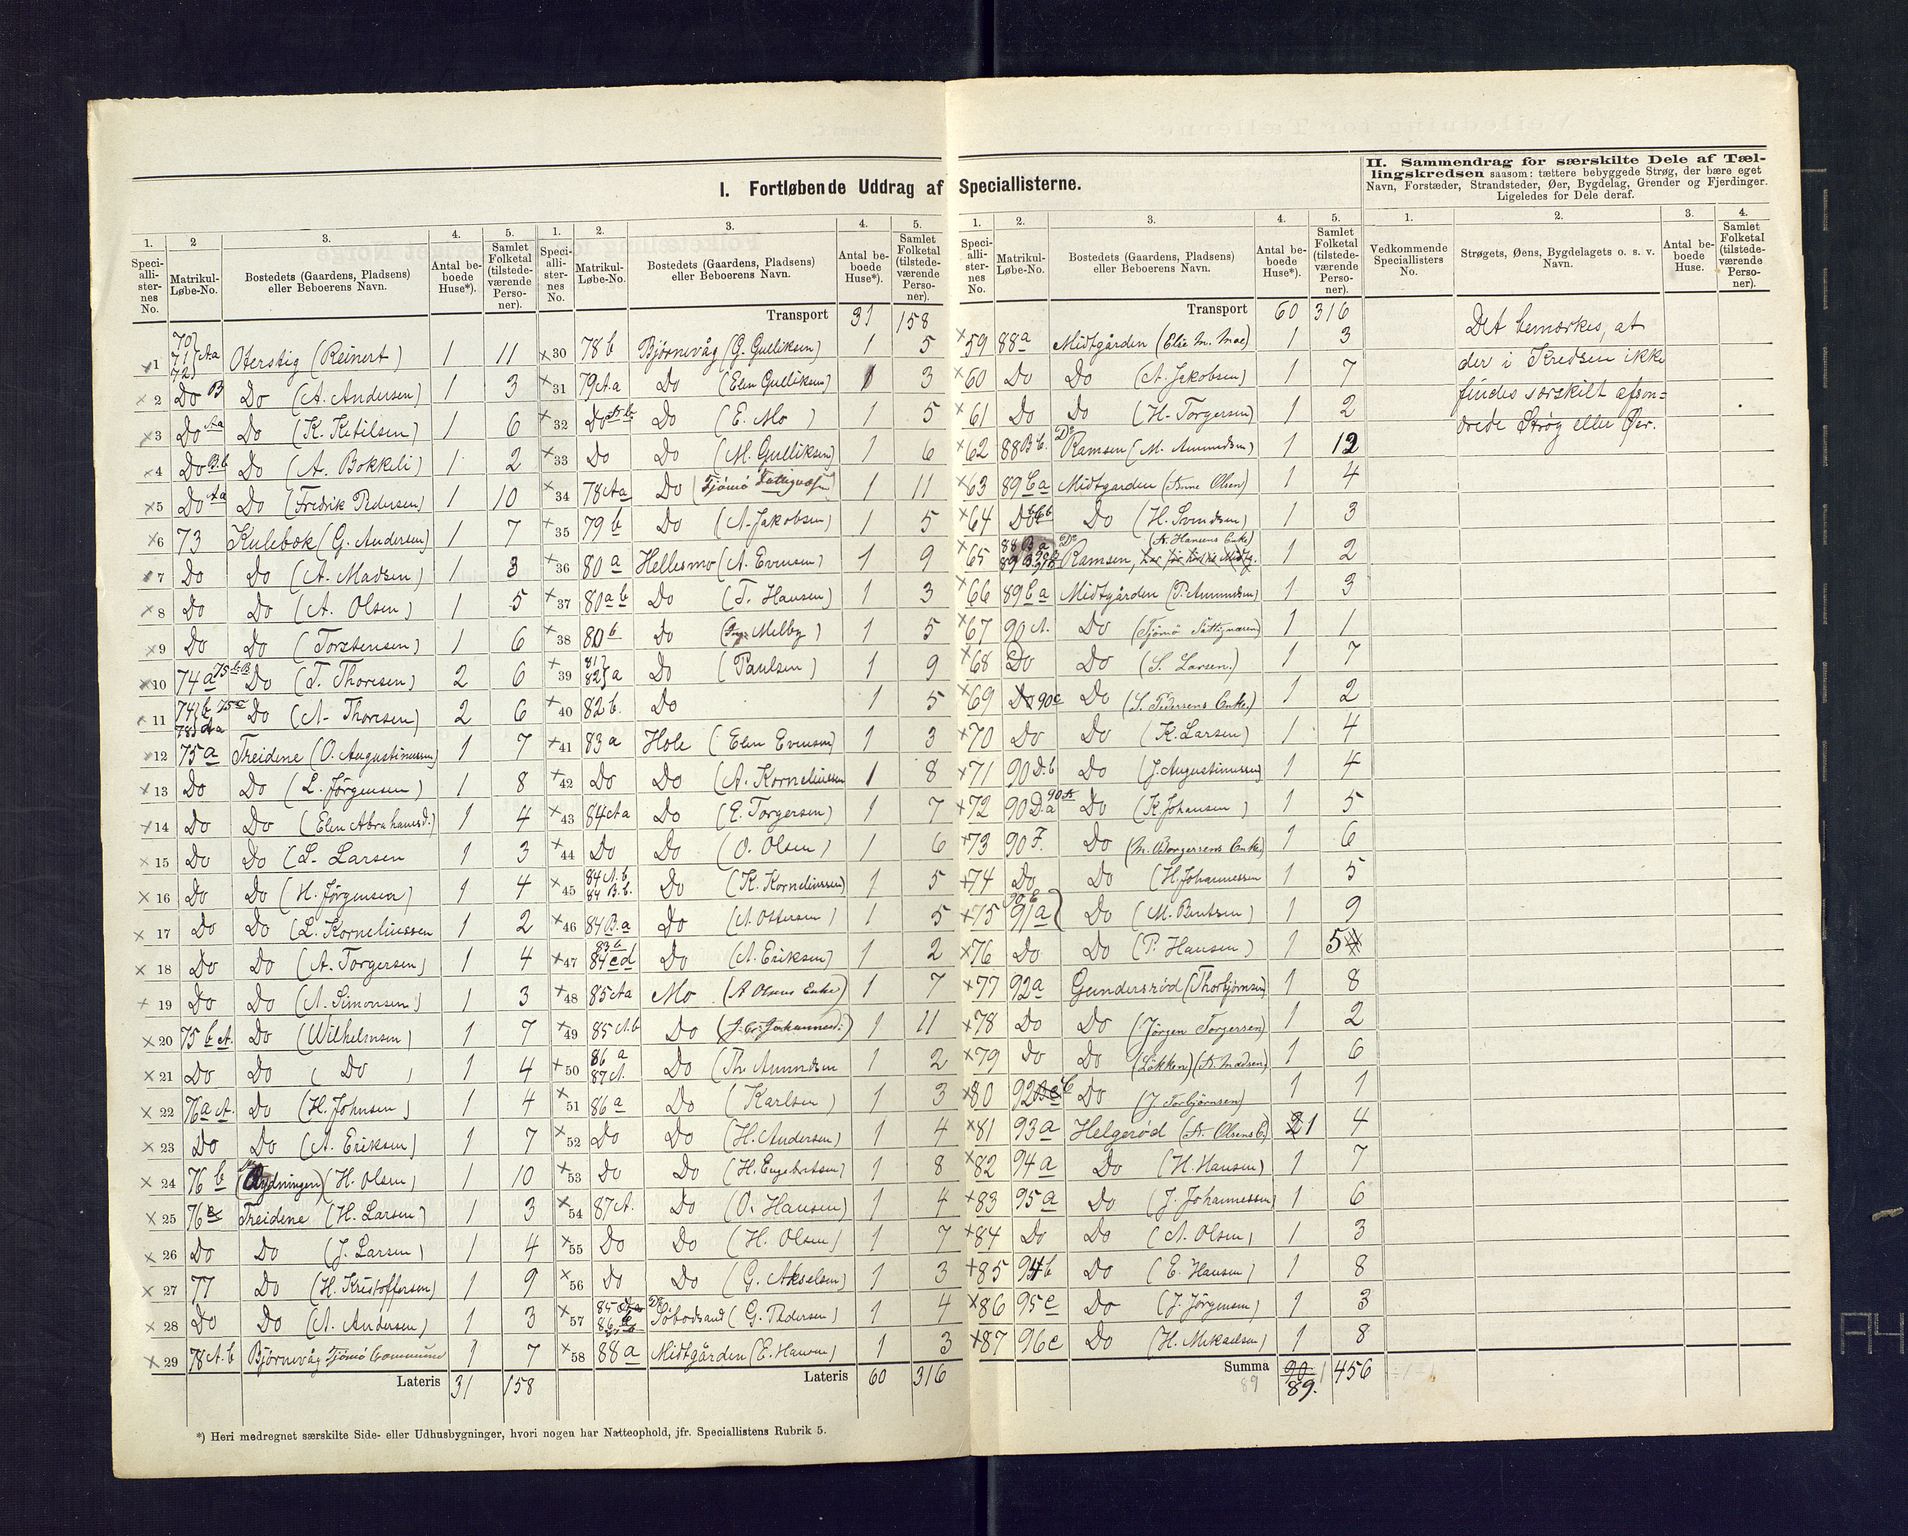 I. Fortløbende Uddrag af Speciallisterne.
II. Sammendrag for særskilte Dele af Tæl-
lingskredsen saasom: tættere bebyggede Strøg, der bære eget
Navn, Forstæder, Strandsteder, Øer, Bygdelag, Grender og Fjerdinger.
Ligeledes for Dele deraf.
1. 2 3. 4. 5.
Speciallisternes No. Matrikul-Løbe-No. Bostedets (Gaardens, Pladsens) eller Beboerens Navn. Antal beboede Huse*). Samlet Folketal (tilstedeværende Personer).
1 70 71 72 Aa Oterstig (Reinert) 1 11
2 Do B Do (A. Andersen) 1 3
3 Do Aa Do (K. Ketilsen) 1 6
4 Do B.b Do (A. Bokkeli) 1 2
5 Do Aa Do (Fredrik Pedersen) 1 10
6 73 Kulebok (G. Andersen) 1 7
7 Do Do (A. Madsen) 1 3
8 Do Do (A. Olsen) 1 5
9 Do Do (Torstensen) 1 6
10 74a 75b B Do (T. Thoresen) 2 6
11 74b 75c Do (A. Thoresen) 2 6
12 75a Treidene (O. Augustinussen) 1 7
13 Do Do (L. Jørgensen) 1 8
14 Do Do (Elen Abrahamsd.) 1 4
15 Do Do (L. Larsen 1 3
16 Do Do (H. Jørgensen) 1 4
17 Do Do (L. Korneliussen 1 2
18 Do Do (A. Torgersen) 1 4
19 Do Do (A. Simonsen) 1 3
20 75 b A. Do (Wilhelmsen) 1 7
21 Do Do ( Do ) 1 4
22 76a A. Do (H. Johnsen) 1 4
23 Do Do (A. Eriksen) 1 7
24 76 b (Rydningen) (H. Olsen) 1 10
25 76 Treidene (H. Larsen) 1 3
26 Do Do (J. Larsen) 1 4
27 77 Do (H. Kristoffersen) 1 9
28 Do Do (A. Andersen) 1 3
29 78 A.b Bjørnevåg Tjømø Commune 1 7
Lateris 31 158
1. 2. 3. 4. 5.
Speciallisternes No. Matrikul-Løbe-No. Bostedets (Gaardens, Pladsens) eller Beboerens Navn. Antal beboede Huse*). Samlet Folketal (tilstedeværende Personer).
Transport 31 158
30 78 b Bjørnevåg (G. Gulliksen) 1 5
31 79 Aa Do (Elen Gulliksen) 1 3
32 Do A b Do (E. Mo ) 1 5
33 Do Do (M. Gulliksen) 1 6
34 78 Aa Do (Tjømø Fattigvæsen 1 11
35 79 b Do (A. Jakobsen) 1 5
36 80 a Hellesmo (A. Evensen) 1 9
37 80 a b Do (T. Hansen) 1 3
38 80 b Do ( Melby ) 1 5
39 81 82 a Do (Paulsen ) 1 9
40 82 b. Do 1 5
41 83 a Hole (Elen Evensen) 1 3
42 Do Do (A. Korneliussen 1 8
43 84 Aa Do (E. Torgersen) 1 7
44 Do Do (O. Olsen) 1 6
45 84 A.b 84 B.b. Do (K. Korneliussen) 1 5
46 84 B.a Do (A. Ottersen) 1 5
47 83 b 84 c d Do (A. Eriksen) 1 2
48 85 Aa Mo (A Olsens Enke) 1 7
49 85 A.b Do ( Johannesd.) 1 11
50 86 a 87 A. Do (Th. Amundsen 1 2
51 86 a Do (Karlsen ) 1 3
52 Do Do (H. Andersen) 1 4
53 Do Do (H. Engebretsen) 1 8
54 87 A. Do (O. Hansen) 1 4
55 Do Do (H. Olsen) 1 7
56 Do Do (G. Akselsen) 1 3
57 85 86 Do Søbodsand (G. Pedersen) 1 4
58 88 a Midtgården (E. Hansen) 1 3
Lateris 60 316
1. 2. 3. 4. 5.
Speciallisternes No. Matrikul-Løbe-No. Bostedets (Gaardens, Pladsens) eller Beboerens Navn. Antal beboede Huse*). Samlet Folketal (tilstedeværende Personer).
Transport 60 316
59 88 a Midtgården (Elie M. Moe) 1 3
60 Do Do (A. Jakobsen) 1 7
61 Do Do (H. Torgersen) 1 2
62 88 B b. Do Ramsen (M. Amundsen) 1 12
63 89 b a Midtgården (Anne Olsen) 1 4
64 Do Do (H. Svendsen) 1 3
65 88 B a 89 B Do Ramsen, (A. Hansens Enke) 1 2
66 89 b a Midtgården (P. Amundsen) 1 3
67 90 A. Do (Tjømø Fattigvæsen) 1 1
68 Do Do (S. Larsen.) 1 7
69 Do 90 c Do (S. Pedersens Enke) 1 2
70 Do Do (K. Larsen) 1 4
71 90 D.b Do (J. Augustinussen) 1 4
72 90 D.a 90 B Do (K. Johansen ) 1 5
73 90 F. Do (M. Borgersens Enke) 1 6
74 Do Do (H. Johannessen 1 5
75 90 E 91 a Do (M. Bentsen ) 1 9
76 Do Do (P. Hansen ) 1 5
77 92 a Gundersrød (Thorbjørnsen) 1 8
78 Do Do (Jørgen Torgersen) 1 2
79 Do Do (Løkken) (A. Madsen) 1 6
80 92 b Do (J. Torbjørnsen) 1 1
81 93 a Helgerød (A. Olsens E.) 1 4
82 94 a Do (H. Hansen) 1 7
83 95 a Do (J. Johannessen) 1 6
84 Do Do (A. Olsen) 1 3
85 94 b Do (E. Hansen ) 1 8
86 95 c Do (J. Jørgensen) 1 3
87 96 c Do (H. Mikaelsen) 1 8
Summa 90 456
89 89.
1. 2. 3. 4.
Vedkommende Speciallisters No. Strøgets, Øens, Bygdelagets o. s. v. Navn. Antal beboede Huse. Samlet Folketal (tilstedeværende Personer).
Det bemærkes, at
der i Kredsen ikke
findes særskilt afson=
drede Strøg eller Øer.
*) Heri medregnet særskilte Side- eller Udhusbygninger, hvori nogen har Natteophold, jfr. Speciallistens Rubrik 5.